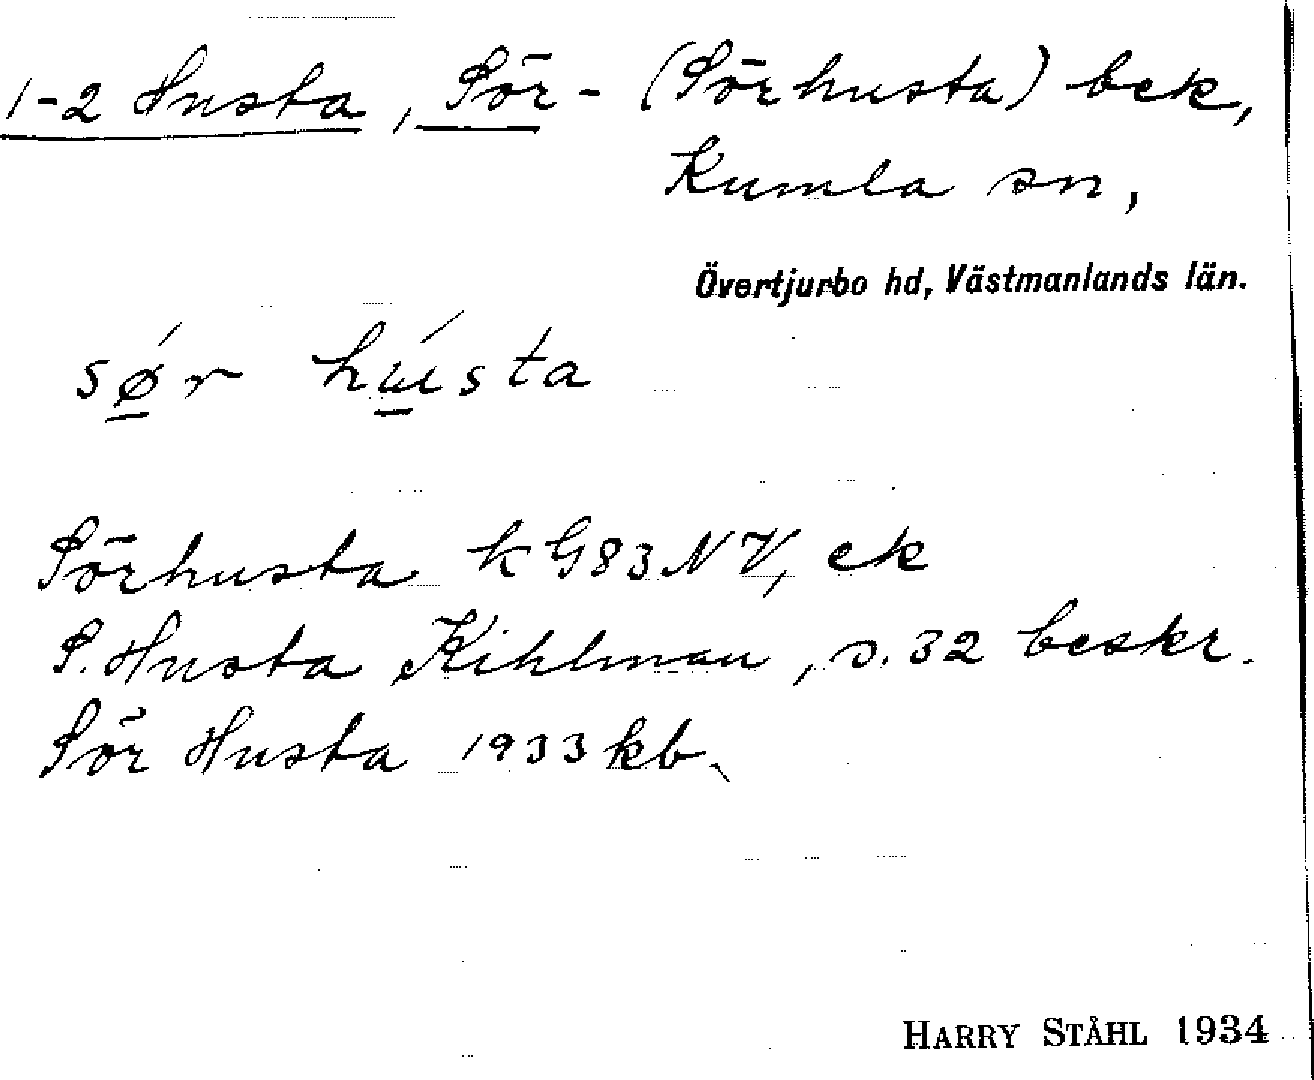 1-2 Husta, Sör- (Sörhusta) bek,
Kumla sn,
Övertjurbo hd, Västmanlands län.
sǿ̱r hú̱sta
Sörhusta k G83NV, ek
S. Husta Kihlman, s. 32 beskr.
Sör Husta 1933 kb.
HARRY STÅHL 1934